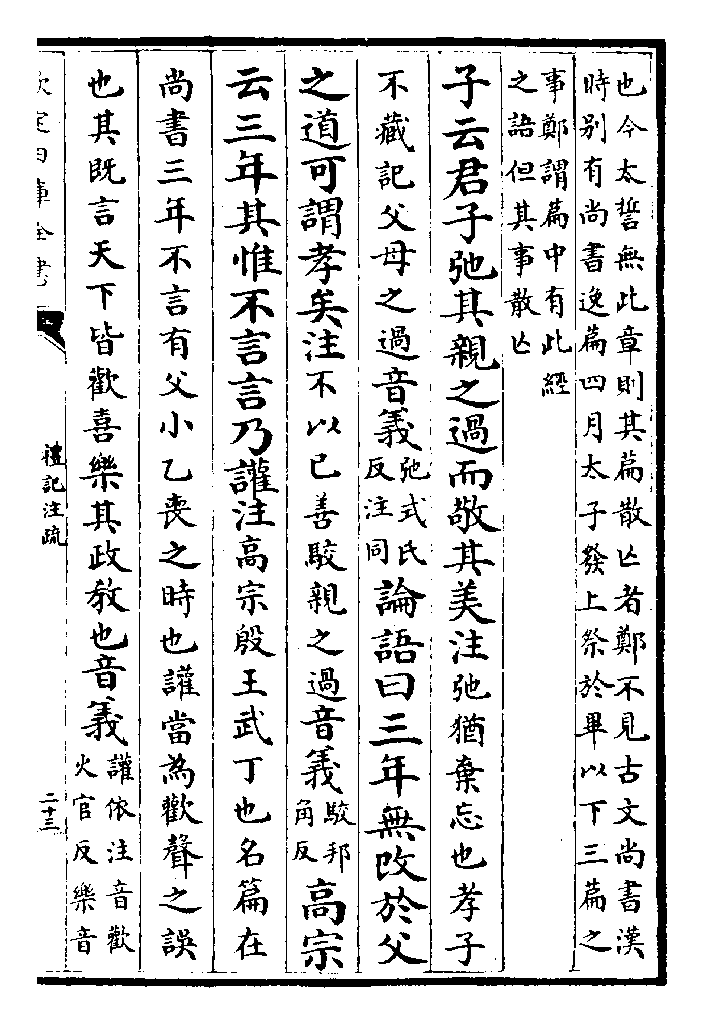 也今太誓無此章則其篇散亡者鄭不見古文尚書漢
時别有尚書逸篇四月太子發上祭於畢以下三篇之
事鄭謂篇中有此經
之語但其事散亡
子云君子弛其親之過而敬其美注弛猶棄忘也孝子
不藏記父母之過音義弛式氏
反注同論語曰三年無改於父
之道可謂孝矣注不以已善駮親之過音義駮邦
角反高宗
云三年其惟不言言乃讙注高宗殷王武丁也名篇在
尚書三年不言有父小乙喪之時也讙當為歡聲之誤
也其既言天下皆歡喜樂其政教也音義讙依注音歡
火官反樂音
欽定四庫全書
禮記注疏
二十三